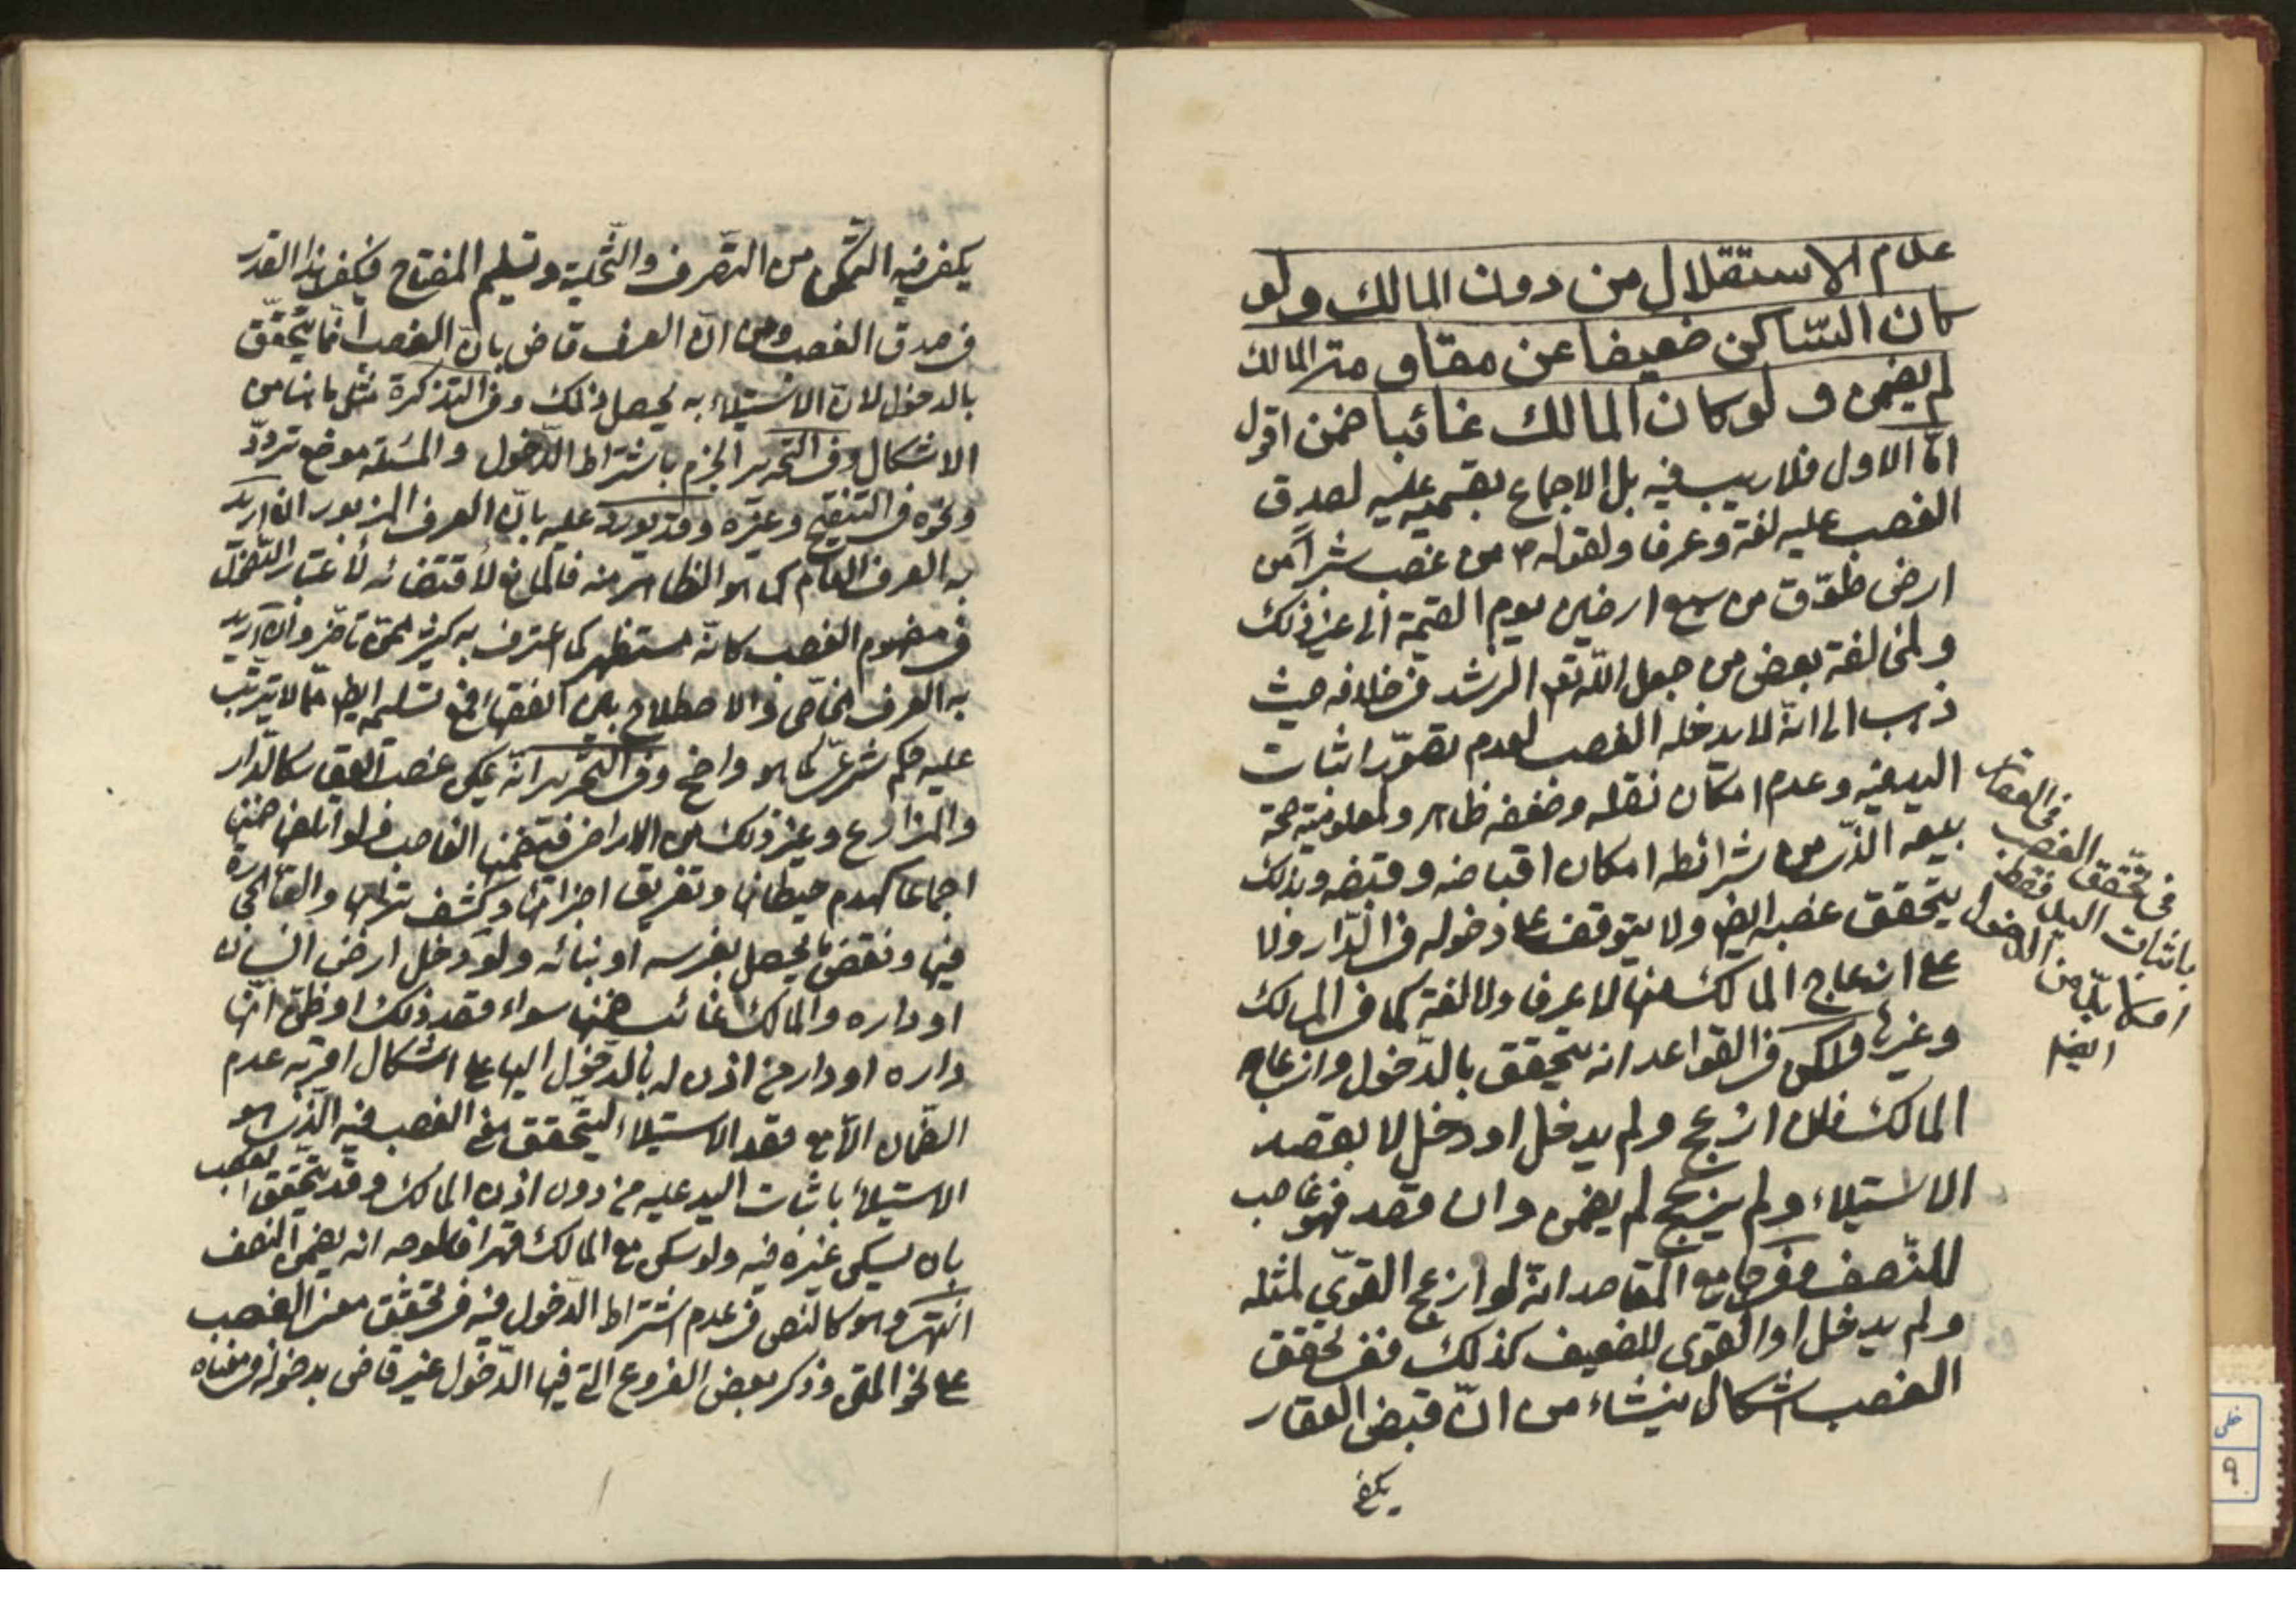 عدم الاستقلال من دون المالك ولو
كان الساكن ضعيفا عن مقاومة المالك
لم يضمن و لو كان المالك غائبا ضمن اقول
امّا الاول فلا ريب فيه بل الاجماع بقسميه عليه لصدق
الغصب عليه لغة وعرفا ولقوله ص من غصب شبراً من
ارض طوّق من سبع ارضين يوم القيمة الى غير ذلك
ولمخالفة بعض من جعل اللّه تع الرشد في خلافه حيث
ذهب الى انّه لا يدخله الغصب لعدم تصوّر اثبات
اليد فيه وعدم امكان نقله وضعفه ظاهر ولمعلومية صحة
بيعه الذى من شرائطه امكان اقباضه وقبضه وبذلك
يتحقق غصبه ايض ولا يتوقف على دخوله في الدّار ولا
على انزعاج المالك منها لا عرفا ولا لغة كما في المسالك
وغيرها ولكن في القواعد انه يتحقق بالدّخول وازعاج
المالك فلان ازعج ولم يدخل او دخل لا بقصد
الاستيلاء ولم يزعج لم يضمن وان قصد فهو غاصب
للنّصف وفي جامع المقاصد انّه لو ازعج القوىّ لمثله
ولم يدخل او القوى للضعيف كذلك ففى تحقق
الغصب اشكال ينشاء من انّ قبض العقار
يكفى
في تحقق الغصب في العقار
باثبات اليد فقط
ام لا بدّ من الدخول
ايضا
يكفى فيه التمكّن من التصرف والتّخلية وتسليم المفتاح فيكفى هذا القدر
في صدق الغصب ومن انّ العرف قاض بانّ الغصب انّما يتحقّق
بالدخول لانّ الاستيلاء به يحصل ذلك وفى التذكرة مثل ما هنا من
الاشكال وفى التحرير الجزم باشتراط الدّخول والمسئلة موضع تردّد
ونحوه في التنقيح وغيره وقد يورد عليه بانّ العرف المزبور ان اريد
به العرف العام كما هو الظاهر منه فالمانع لاقتضائه لاعتبار الدّخول
في مفهوم الغصب كانّه مستظهر كما اعترف به كثير ممّن تاخّر وان اريد
به العرف الخاصّ والاصطلاح بين الفقهاء فمع تسليمه ايض ممّا لا يترتّب
عليه حكم شرعىّ كما هو واضح وفى التحرير انّه يمكن غصب العقار كالدّار
والمزارع وغير ذلك من الاراضى فيضمنها الغاصب فلو اتلفها ضمنها
اجماعا كهدم حيطانها وتفريق اجزائها وكشف ترابها والقاء الحجارة
فيها ونقض ما يحصل بغرسه او بنائه ولو دخل ارض انسان
او داره والمالك غائب ضمنها سواء قصد ذلك او ظنّ انّها
داره او دار من اذن له بالدّخول اليها على اشكال اقربه عدم
الضمان الّا مع قصد الاستيلاء ليتحقق معنى الغصب فيه الّذى هو
الاستيلاء باثبات اليد عليه من دون اذن المالك وقد يتحقق الغصب
بان يسكن غيره فيه ولو سكن مع المالك قهرا فالوجه انه يضمن النصف
انتهى وهو كالنص في عدم اشتراط الدّخول فيه في تحقق معنى الغصب
على نحو المتن وذكر بعض الفروع التى فيها الدّخول غير قاض بدخوله في معناه
خطى
٩